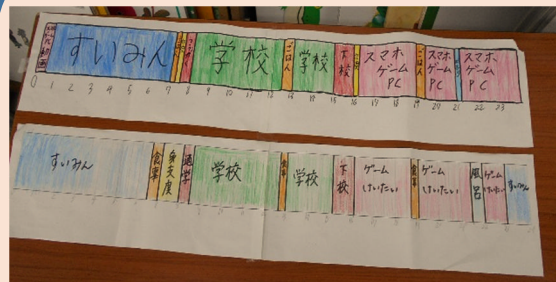 すいみん
学校
ごはん
学校
下校
スマホ
ゲーム
PC
ごはん
スマホ
ゲーム
PC
スマホ
ゲーム
PC
0 1 2 3 4 5 6 7 8 9 10 11 12 13 14 15 16 17 18 19 20 21 22 23
すいみん
食事
身支度
通学
学校
食事
学校
下校
ゲーム
けいたい
食事
ゲーム
けいたい
風呂
ゲーム
けいたい
すいみん